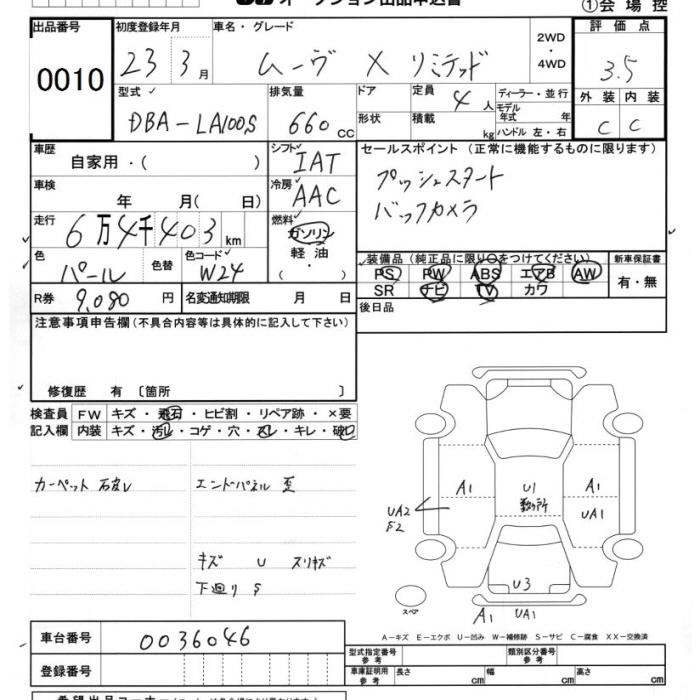 ①会場控
出品番号 初度登録年月 車名・グレード 評価点
0010
23 3月 ムーヴ X リミテッド 2WD・4WD 3.5
型式 排気量 ドア 定員 4人 ディーラー・並行 外装 内装
DBA-LA100S 660cc 形状 積載 kg モデル年式 年 ハンドル 左・右 C C
車歴 自家用・( ) シフト IAT セールスポイント (正常に機能するものに限ります)
車検 年 月( 日) 冷房 AAC プッシュスタート
走行 6万4千403km 燃料 ガソリン 軽油 ・( ) バックカメラ
色 パール 色替 色コード W24 装備品(純正品に限り○をつけてください) 新車保証書
PS PW ABS エアB AW 有・無
R券 9,080円 名変通知期限 月 日 SR ナビ TV カワ
注意事項申告欄(不具合内容等は具体的に記入して下さい) 後日品
修復歴 有 〔箇所 〕
検査員 FW キズ・飛石・ヒビ割・リペア跡・×要
記入欄 内装 キズ・汚レ・コゲ・穴・スレ・キレ・破レ
カーペット エンドパネル 歪
A1 U1 A1
UA2 UA1
キズ U スリキズ
下廻り S
U3
スペア A1 UA1
A-キズ E-エクボ U-凹み W-補修跡 S-サビ C-腐食 XX-交換済
車台番号 0036046
型式指定番号 参考 類別区分番号 参考
登録番号 車庫証明用 参考 長さ cm 幅 cm 高さ cm